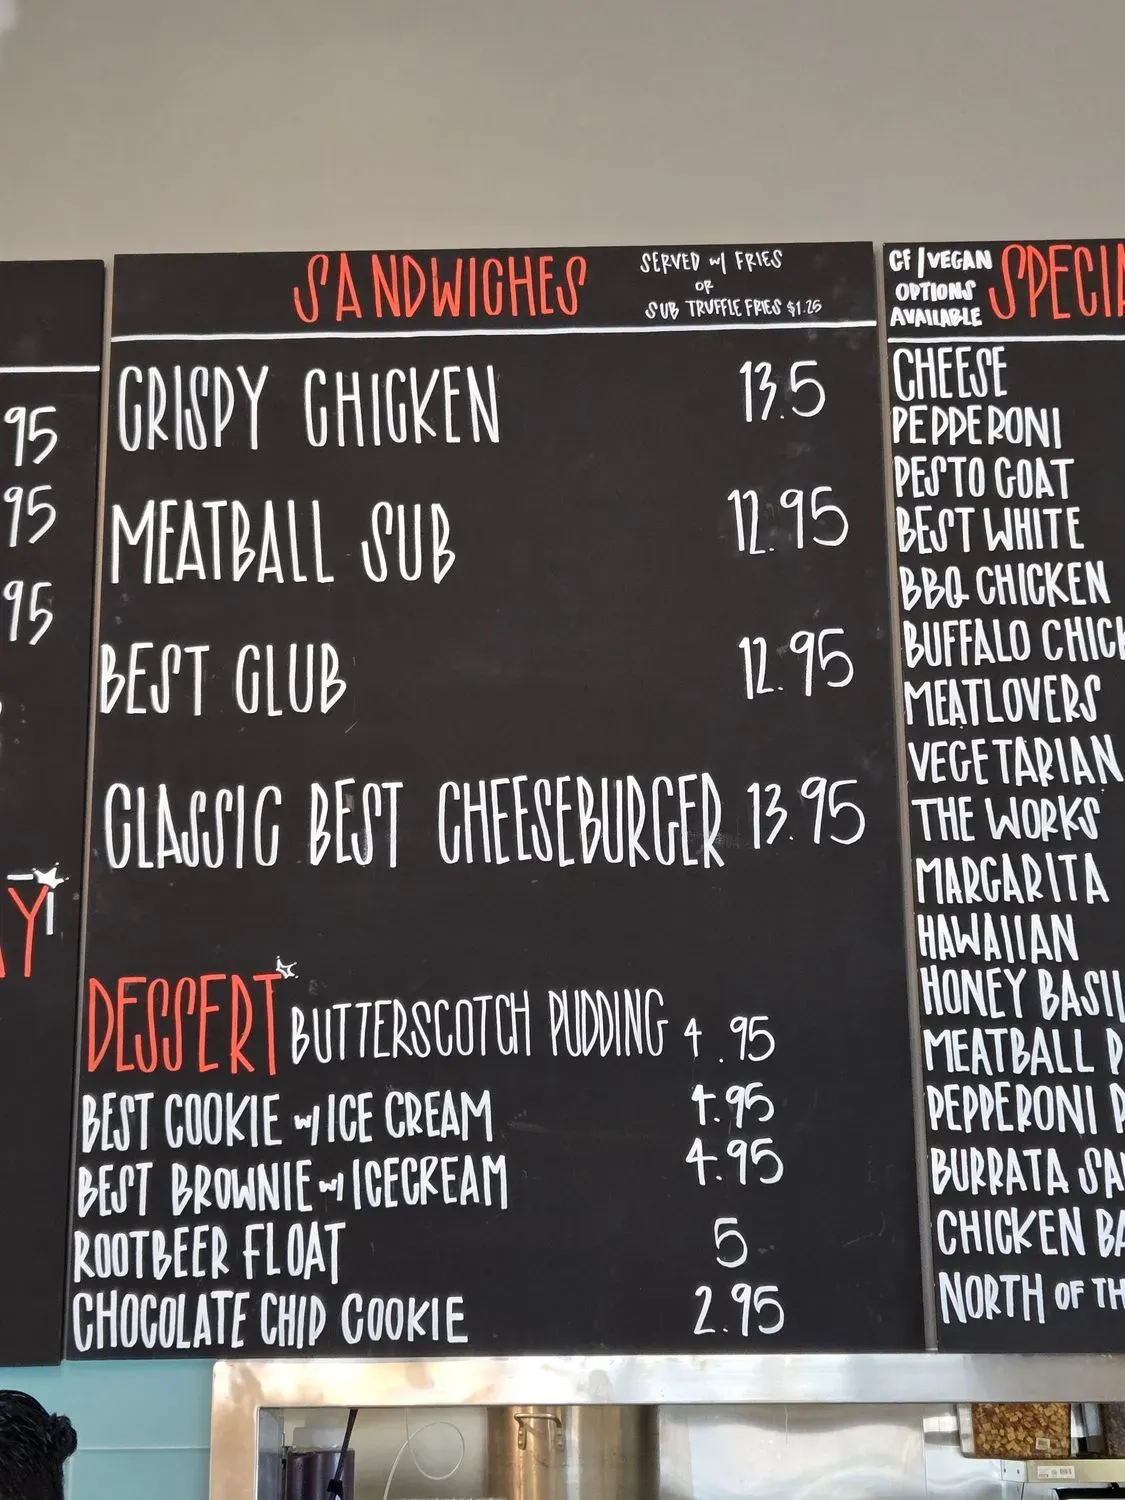 95
95
95
AY
SANDWICHES
SERVED w/ FRIES
OR
SUB TRUFFLE FRIES $1.25
CRISPY CHICKEN 13.5
MEATBALL SUB 12.95
BEST CLUB 12.95
CLASSIC BEST CHEESEBURGER 13.95
DESSERT
BUTTERSCOTCH PUDDING 4.95
BEST COOKIE w/ ICE CREAM 4.95
BEST BROWNIE w/ ICECREAM 4.95
ROOTBEER FLOAT 5
CHOCOLATE CHIP COOKIE 2.95
GF/VEGAN
OPTIONS
AVAILABLE
SPECIA
CHEESE
PEPPERONI
PESTO GOAT
BEST WHITE
BBQ CHICKEN
BUFFALO CHICK
MEATLOVERS
VEGETARIAN
THE WORKS
MARGARITA
HAWAIIAN
HONEY BASIL
MEATBALL P
PEPPERONI P
BURRATA SA
CHICKEN BA
NORTH OF TH